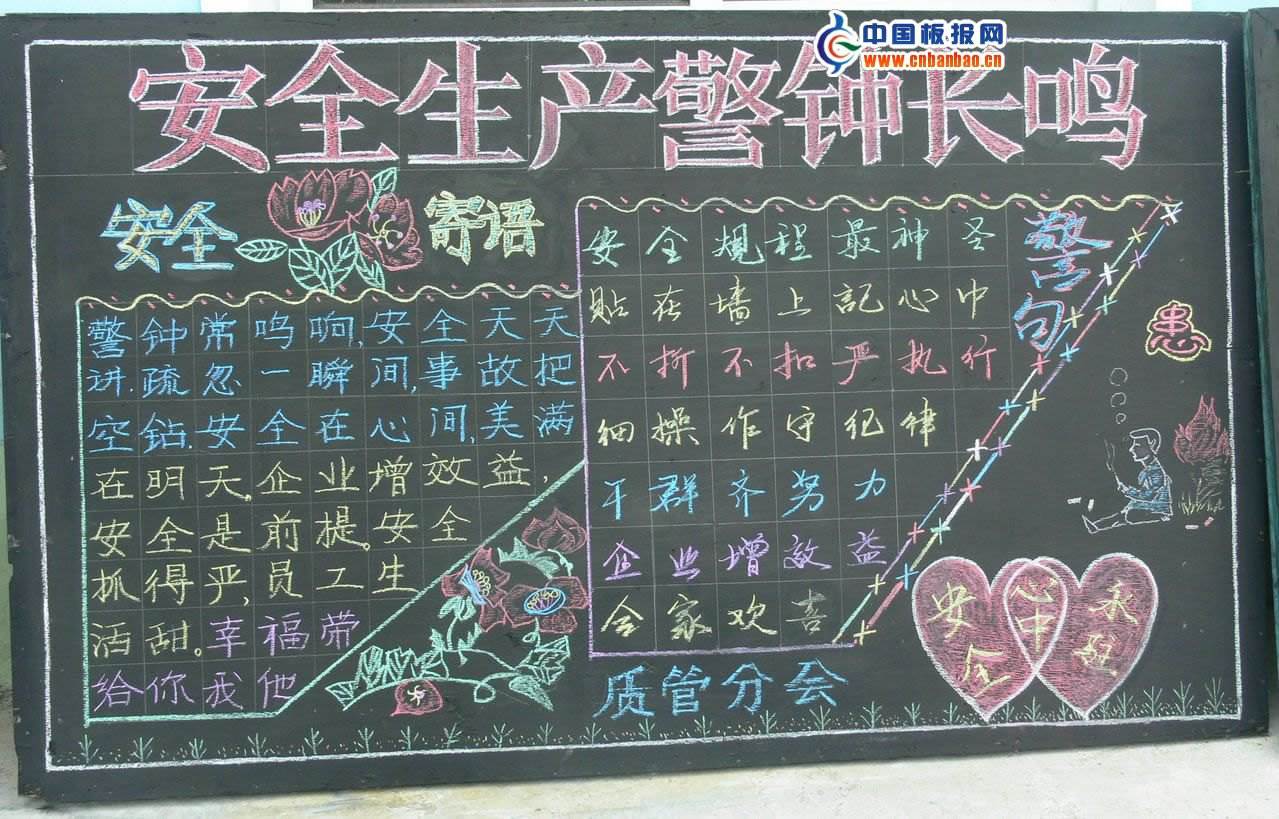 中国板报网
www.cnbanbao.cn
安全生产警钟长鸣
安全寄语
警钟常鸣响,安全天天
讲.疏忽一瞬间,事故把
空钻.安全在心间,美满
在明天。企业增效益,
安全是前提。安全
抓得严,员工生
活甜。幸福带
给你我他
警句
安全規程最神圣
貼在墙上記心中
不折不扣严执行
细操作守纪律
干群齐努力
企业增效益
合家欢喜
质管分会
患
安全
心中
永